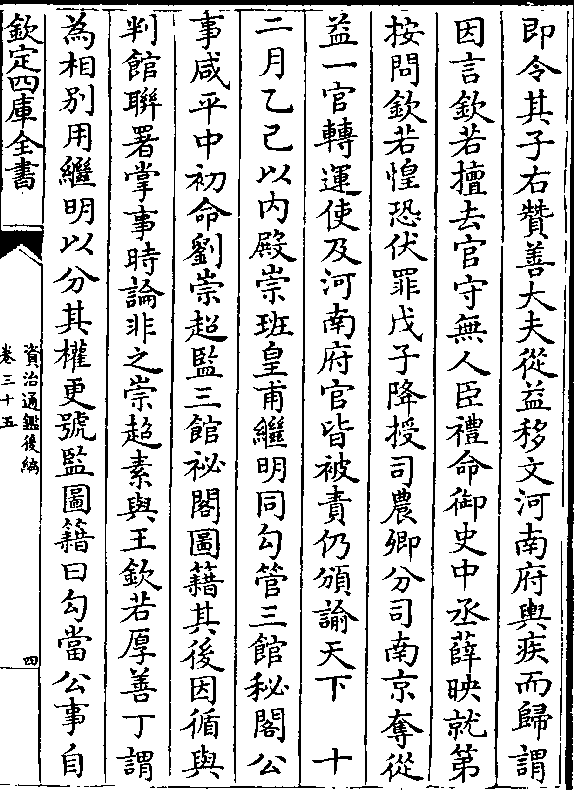 即令其子右贊善大夫從益移文河南府輿疾而歸謂
因言欽若擅去官守無人臣禮命御史中丞薛映就第
按問欽若惶恐伏罪戊子降授司農卿分司南京奪從
益一官轉運使及河南府官皆被責仍頒諭天下　十
二月乙己以内殿崇班皇甫繼明同勾管三館秘閣公
事咸平中初命劉崇超監三館祕閣圖籍其後因循與
判館聯署掌事時論非之崇超素與王欽若厚善丁謂
為相别用繼明以分其權更號監圖籍曰勾當公事自
欽定四庫全書
資治通鑑後編
卷三十五
四